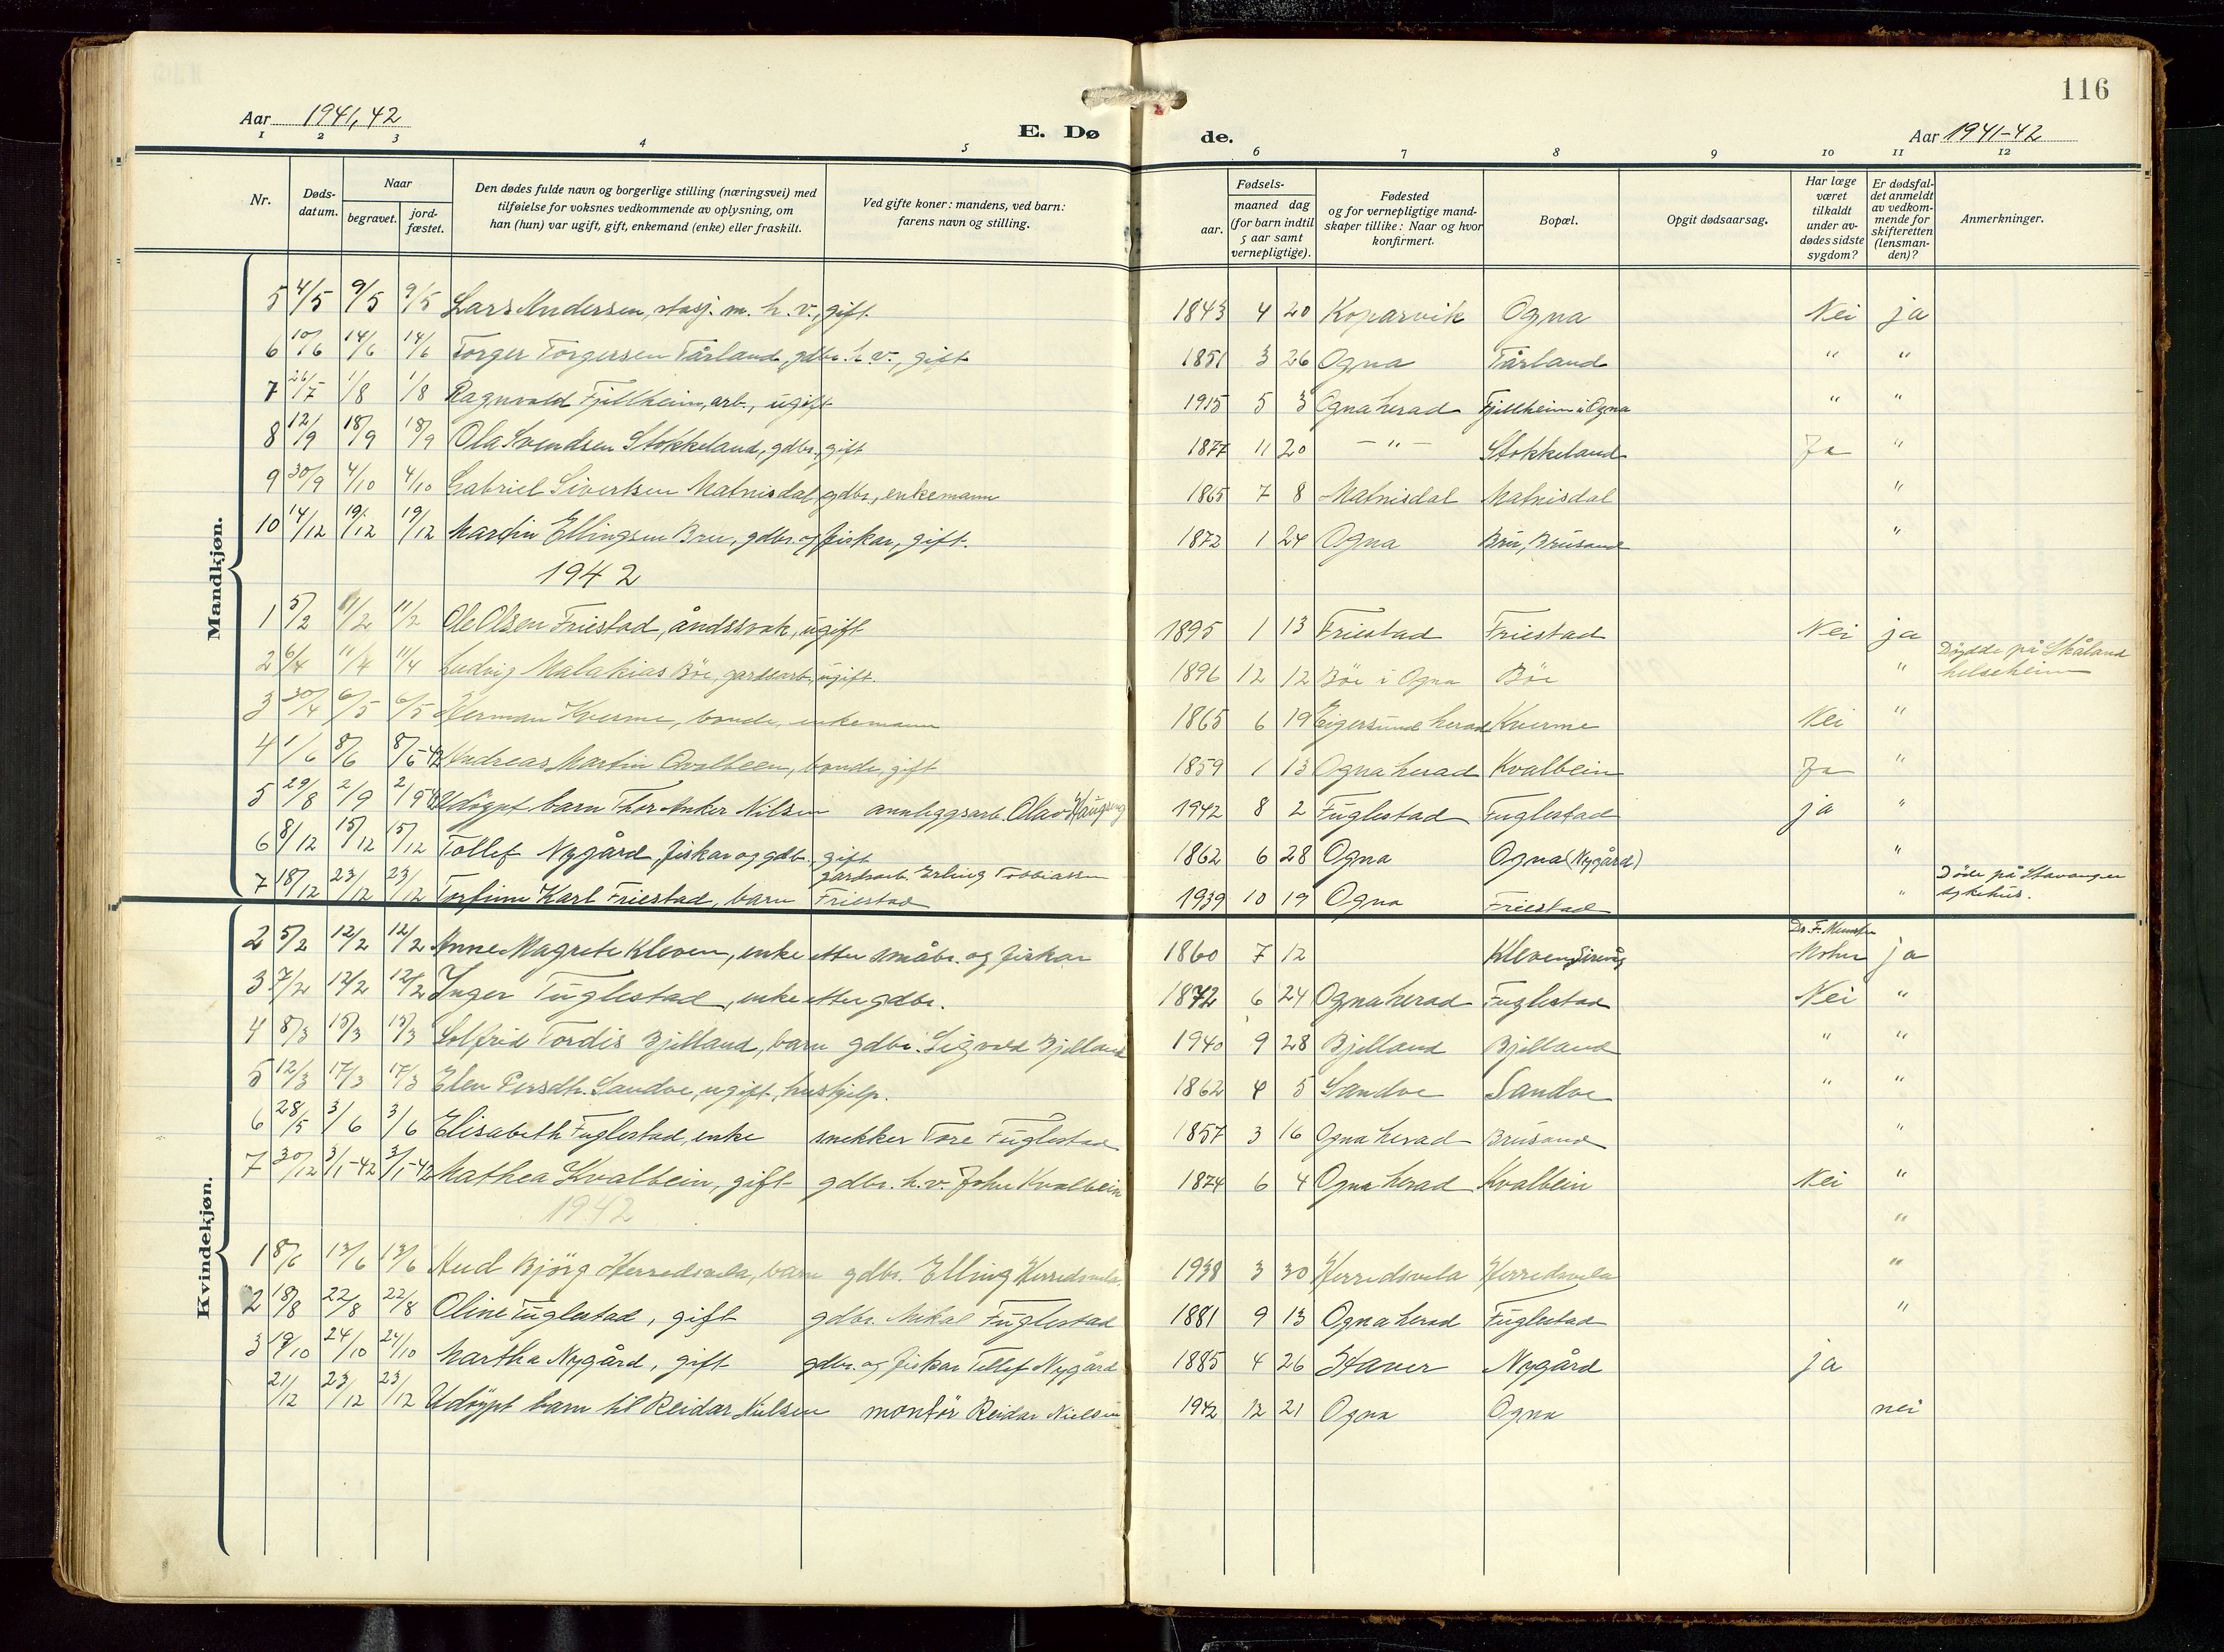 116
Aar 1941, 42
E. Dø de.
Aar 1941-42
1 2 3 4 5 6 7 8 9 10 11 12
Nr.
Døds-
datum.
Naar
begravet.
jord-
fæstet.
Den dødes fulde navn og borgerlige stilling (næringsvei) med
tilføielse for voksnes vedkommende av oplysning, om
han (hun) var ugift, gift, enkemand (enke) eller fraskilt.
Ved gifte koner: mandens, ved barn:
farens navn og stilling.
Fødsels-
aar.
maaned dag
(for barn indtil
5 aar samt
vernepligtige).
Fødested
og for vernepligtige mand-
skaper tillike: Naar og hvor
konfirmert.
Bopæl.
Opgit dødsaarsag.
Har læge
været
tilkaldt
under av-
dødes sidste
sygdom?
Er dødsfal-
det anmeldt
av vedkom-
mende for
skifteretten
(lensman-
den)?
Anmerkninger.
Mandkjøn.
5 4/5 9/5 9/5 Lars Andersen, stasj. m. h. v., gift 1843 4 20 Koparvik Ogna Nei ja
6 10/6 14/6 14/6 Torger Torgersen Tårland, gdbr. h. v., gift 1851 3 26 Ogna Tårland " "
7 26/7 1/8 1/8 Ragnvald Fjellheim, arb., ugift 1915 5 3 Ogna herad Fjellheim i Ogna " "
8 12/9 18/9 18/9 Ola Svendsen Stokkeland, gdbr., gift 1877 11 20 - " - Stokkeland Ja "
9 30/9 4/10 4/10 Gabriel Sivertsen Matnisdal gdbr., enkemann 1865 7 8 Matnisdal Matnisdal "
10 14/12 19/12 19/12 Martin Ellingsen Bru, gdbr. og fiskar, gift. 1872 1 24 Ogna Bru, Brusand "
1942
1 5/2 11/2 11/2 Ole Olsen Friestad, åndssvak, ugift 1895 1 13 Friestad Friestad Nei ja
2 6/4 11/4 11/4 Ludvig Malakias Böe, gardsarb., ugift. 1896 12 12 Böe i Ogna Böe " Döydde på Skåland
helseheim
3 30/4 6/5 6/5 Herman Kverme, bonde, enkemann 1865 6 19 Eigersund herad Kverme Nei "
4 1/6 8/6 8/6-42 Andreas Martin Qvalbeen, bonde, gift 1859 1 13 Ogna herad Kvalbein Ja "
5 29/8 2/9 2/9 Udöypt barn Thor Anker Nilsen annleggsarb. Olav 1942 8 2 Fuglestad Fuglestad ja "
6 8/12 15/12 15/12 Tollef Nygård, fiskar og gdbr., gift 1862 6 28 Ogna Ogna (Nygård) "
7 18/12 23/12 23/12 Torfinn Karl Friestad, barn gardsarb. Erling Tobbiassen
Friestad 1939 10 19 Ogna Friestad " Döde på Stavanger
sykehus.
Kvindekjøn.
2 5/2 12/2 12/2 Anne Magrete Kleven, enke etter småbr. og fiskar 1860 7 12 Kleven, Sirevåg Dr. F. ja
3 7/2 12/2 12/2 Inger Fuglestad, enke etter gdbr. 1872 6 24 Ogna herad Fuglestad Nei "
4 8/3 15/3 15/3 Solfrid Tordis Bjelland, barn gdbr. Sigvald Bjelland 1940 9 28 Bjelland Bjelland " "
5 12/3 17/3 17/3 Elen Persdtr. Sandve, ugift, hushjelp. 1862 4 5 Sandve Sandve " "
6 28/5 3/6 3/6 Elisabeth Fuglestad, enke snekker Tore Fuglestad 1857 3 16 Ogna herad Brusand "
7 30/12 3/1-42 3/1-42 Mathea Kvalbein, gift gdbr. h. v. John Kvalbein 1874 6 4 Ogna herad Kvalbein Nei "
1942 "
1 8/6 13/6 13/6 Aud Björg Herredsvela, barn gdbr. Elling Herredsvela 1938 3 30 Herredsvela Herredsvela "
2 18/8 22/8 22/8 Oline Fuglestad, gift gdbr. Mikal Fuglestad 1881 9 13 Ogna herad Fuglestad "
3 19/10 24/10 24/10 Martha Nygård, gift gdbr. og fiskar Tollef Nygård 1885 4 26 Nygård ja
21/12 23/12 23/12 Udöypt barn til Reidar Nielsen montör Reidar Nielsen 1942 12 21 Ogna Ogna nei